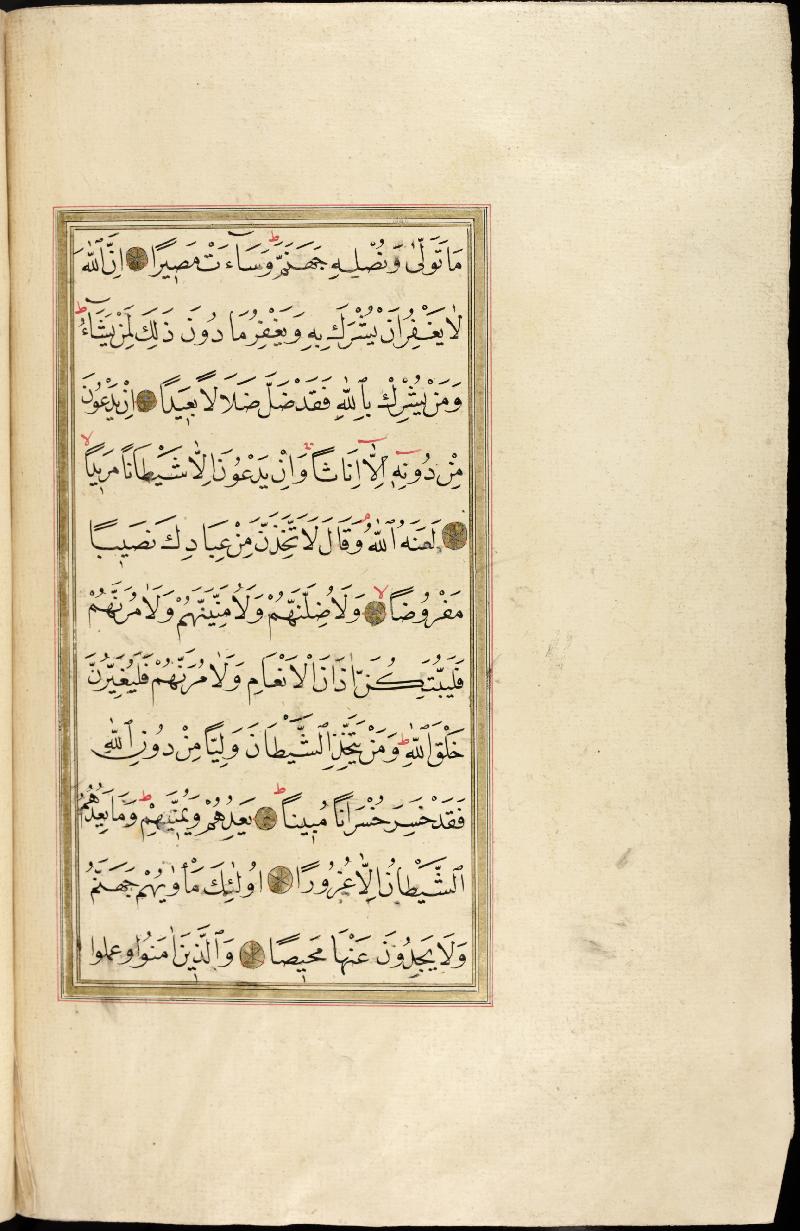 مَا تَوَلّٰى وَنُصْلِهِ جَهَنَّمَ ط وَسَاءَتْ مَصِيرًا ۝ اِنَّ اللّٰهَ
لَا يَغْفِرُ اَنْ يُشْرَكَ بِهِ وَيَغْفِرُ مَا دُونَ ذٰلِكَ لِمَنْ يَشَاءُ ط
وَمَنْ يُشْرِكْ بِاللّٰهِ فَقَدْ ضَلَّ ضَلَالًا بَعِيدًا ۝ اِنْ يَدْعُونَ
مِنْ دُونِهِ اِلَّا اِنَاثًا وَاِنْ يَدْعُونَ اِلَّا شَيْطَانًا مَرِيدًا لا
۝ لَعَنَهُ اللّٰهُ م وَقَالَ لَاَتَّخِذَنَّ مِنْ عِبَادِكَ نَصِيبًا
مَفْرُوضًا لا ۝ وَلَاُضِلَّنَّهُمْ وَلَاُمَنِّيَنَّهُمْ وَلَاٰمُرَنَّهُمْ
فَلَيُبَتِّكُنَّ اٰذَانَ الْاَنْعَامِ وَلَاٰمُرَنَّهُمْ فَلَيُغَيِّرُنَّ
خَلْقَ اللّٰهِ ط وَمَنْ يَتَّخِذِ الشَّيْطَانَ وَلِيًّا مِنْ دُونِ اللّٰهِ
فَقَدْ خَسِرَ خُسْرَانًا مُبِينًا ط ۝ يَعِدُهُمْ وَيُمَنِّيهِمْ ط وَمَا يَعِدُهُمُ
الشَّيْطَانُ اِلَّا غُرُورًا ۝ اُولٰئِكَ مَأْوٰيهُمْ جَهَنَّمُ
وَلَا يَجِدُونَ عَنْهَا مَحِيصًا ۝ وَالَّذِينَ اٰمَنُوا وَعَمِلُوا